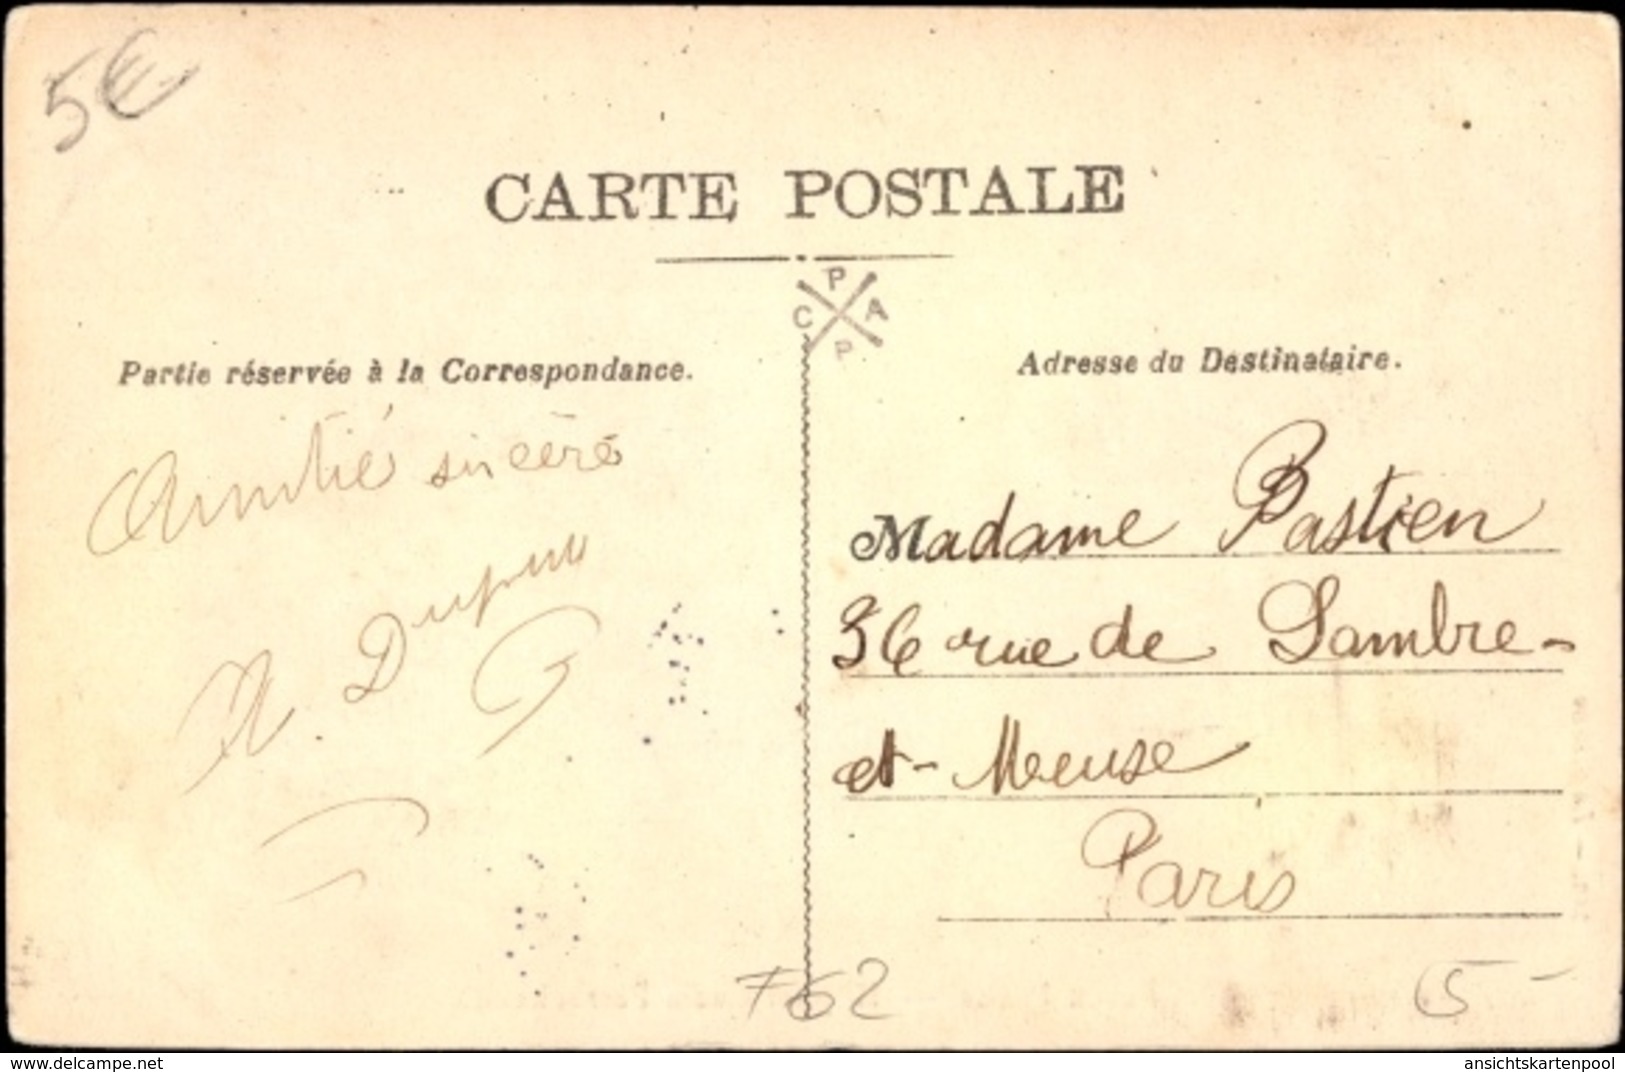 5€
CARTE POSTALE
C P A P
Partie réservée à la Correspondance.
Adresse du Destinataire.
Amitié sincère
Madame Bastien
36 rue de Sambre-
et-Meuse
Paris
F62
5-
delcampe.net
ansichtskartenpool